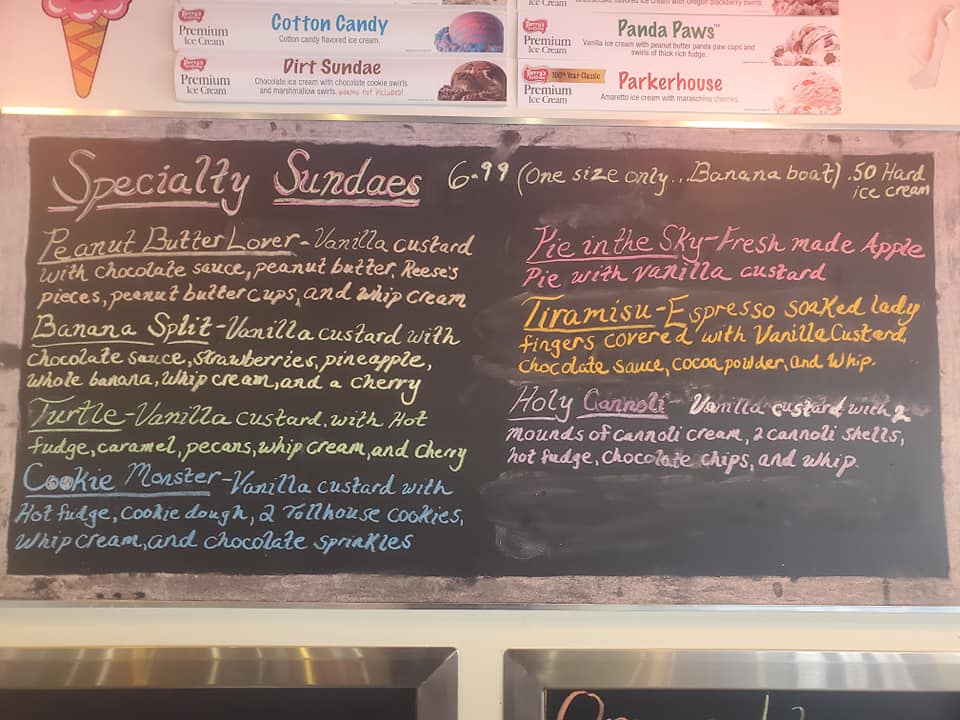 Premium
Ice Cream
Cotton Candy
Cotton candy flavored ice cream.
Perry's
Premium
Ice Cream
Dirt Sundae
Chocolate ice cream with chocolate cookie swirls
and marshmallow swirls. worms not included!
Ice Cream
Perry's
Premium
Ice Cream
Panda Paws™
Vanilla ice cream with peanut butter panda paw cups and
swirls of thick rich fudge.
Perry's
100+ Year Classic
Premium
Ice Cream
Parkerhouse
Amaretto ice cream with maraschino cherries.
Specialty Sundaes 6.99 (One size only...Banana boat) .50 Hard
ice cream
Peanut Butter Lover-Vanilla custard
with chocolate sauce, peanut butter, Reese's
pieces, peanut butter cups, and whip cream
Banana Split-Vanilla custard with
chocolate sauce, strawberries, pineapple,
whole banana, whip cream, and a cherry
Turtle-Vanilla custard, with Hot
fudge, caramel, pecans, whip cream, and cherry
Cookie Monster-Vanilla custard with
Hot fudge, cookie dough, 2 Tollhouse cookies,
whip cream, and chocolate sprinkles
Pie in the Sky-Fresh made Apple
Pie with vanilla custard
Tiramisu-Espresso soaked lady
fingers covered with Vanilla Custard,
chocolate sauce, cocoa powder, and whip.
Holy Cannoli- Vanilla custard with 2
mounds of cannoli cream, 2 cannoli shells,
hot fudge, chocolate chips, and whip.